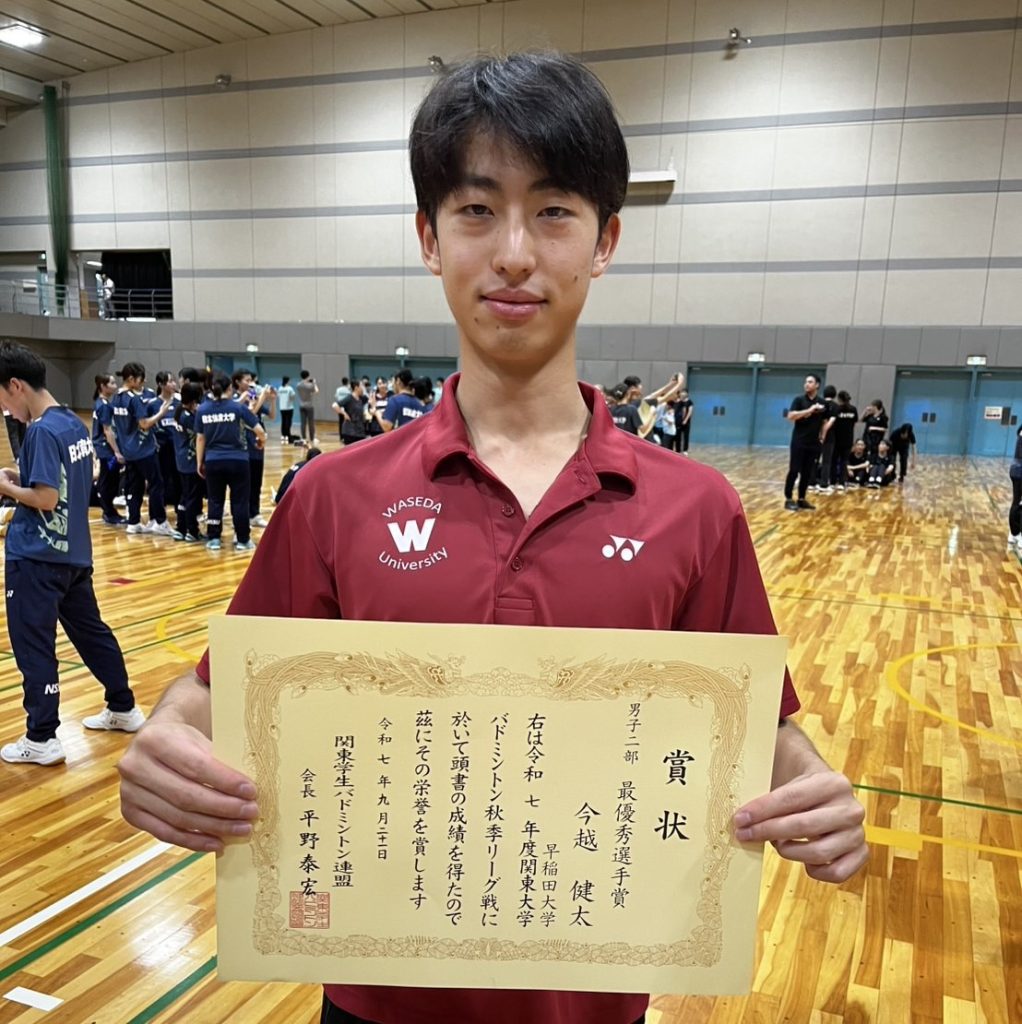 WASEDA
W
University
賞状
男子二部　最優秀選手賞
今越　健太
早稲田大学
右は令和　七　年度関東大学
バドミントン秋季リーグ戦に
於いて頭書の成績を得たので
茲にその栄誉を賞します
令和　七　年　九　月　二十一日
関東学生バドミントン連盟
会長　平野泰宏